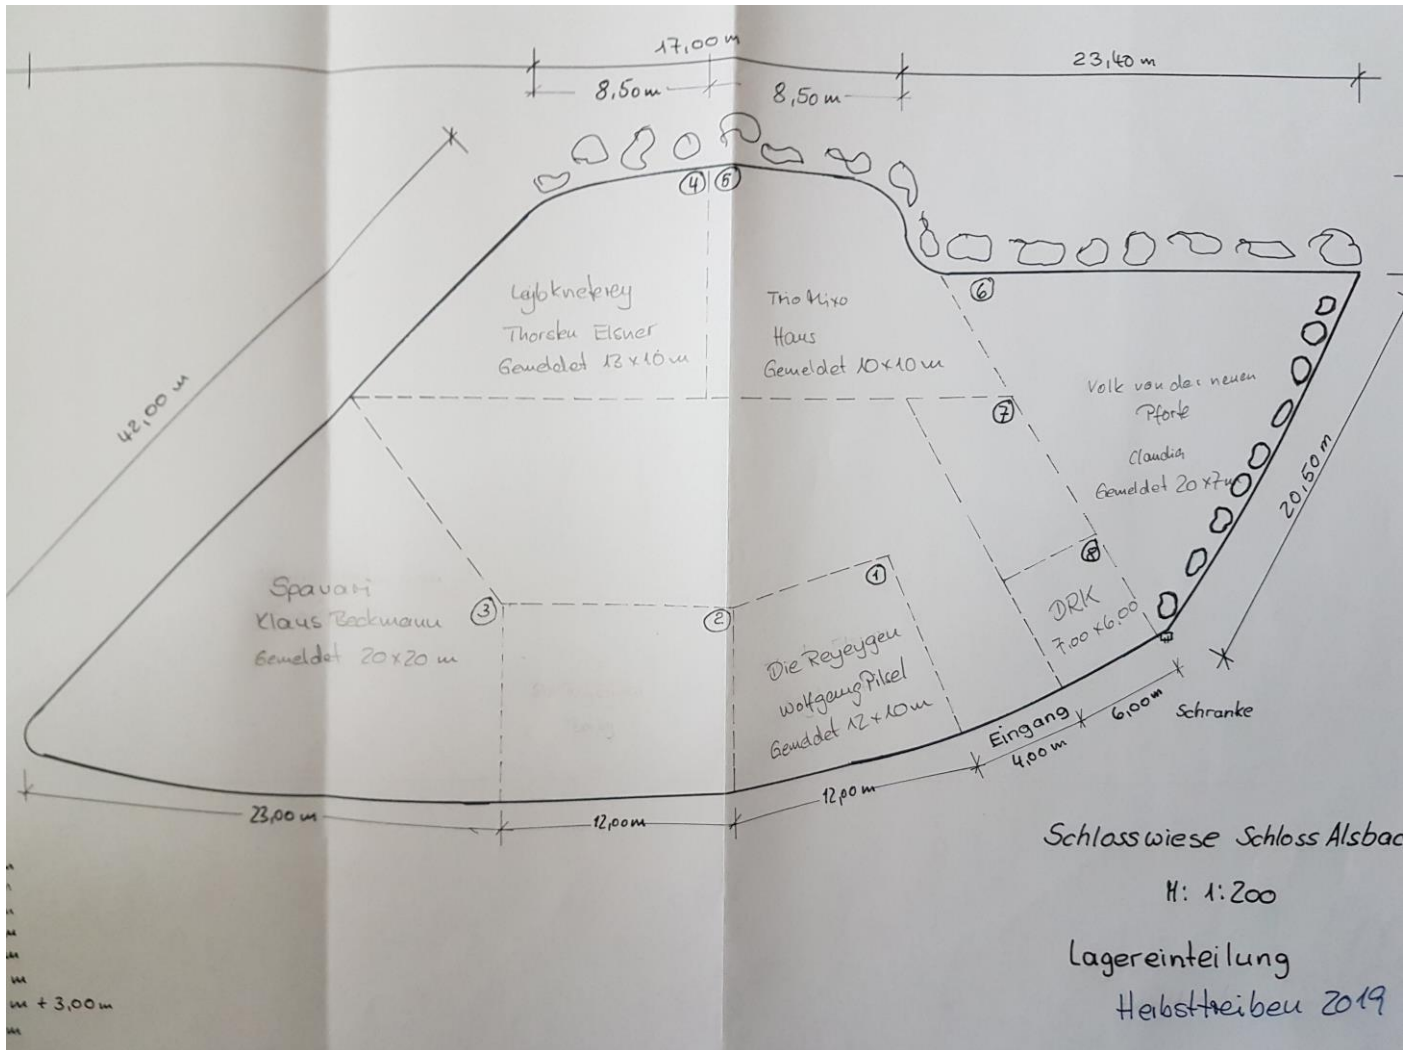 17,00 m
23,40 m
8,50 m
8,50 m
42,00 m
4
5
6
Lejbkneterey
Thorsten Elsner
Gemeldet 13 x 10 m
Trio Mixo
Haus
Gemeldet 10x10 m
7
Volk von der neuen
Pforte
Claudia
Gemeldet 20 x 7 m
20,50 m
8
DRK
7.00 x 6.00
1
2
3
Spavari
Klaus Beckmann
Gemeldet 20x20 m
Die Reyeygen
Wolfgang Pilsel
Gemeldet 12 x 10 m
Eingang
4,00 m
6,00 m
Schranke
12,00 m
12,00 m
23,00 m
Schlosswiese Schloss Alsbac
M: 1:200
Lagereinteilung
Herbsttreiben 2019
m + 3,00 m